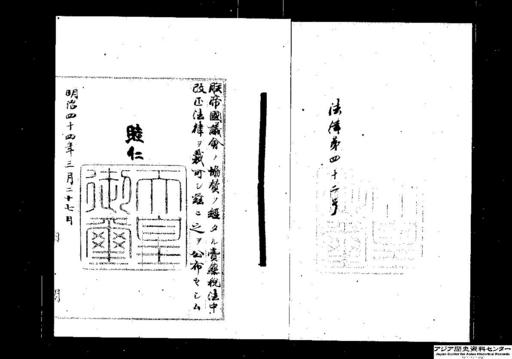 法律第四十二号
朕帝國議會ノ協賛ヲ經タル賣藥税法中
改正法律ヲ裁可シ茲ニ之ヲ公布セシム
睦仁
天皇御璽
明治四十四年三月二十七日
アジア歴史資料センター
Japan Center for Asian Historical Records